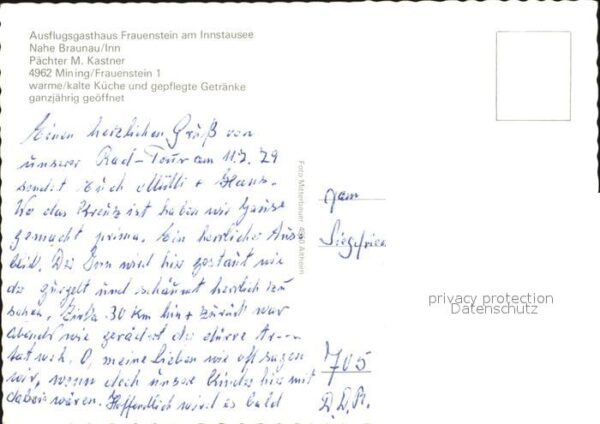 Ausflugsgasthaus Frauenstein am Innstausee
Nahe Braunau/Inn
Pächter M. Kastner
4962 Mining/Frauenstein 1
warme/kalte Küche und gepflegte Getränke
ganzjährig geöffnet
Einen herzlichen Gruß von
unserer Rad-Tour am 11.7.79
sendet Euch Mutti + Hans.
Wo das Kreutz ist haben wir Pause
gemacht prima. Ein herrlicher Aus-
blick. Der Inn wird hier gestaut wie
da gurgelt und schäumt herrlich zu
sehen. Zirka 30 Km hin + zurück war
abends wie gerädert die dürre
tat weh. O, meine Lieben wie oft sagen
wir, wenn doch unsere Kinder hier mit
dabei wären. Hoffendlich wird es bald
Foto Mitterbauer, 4950 Altheim
Fam
Siegfried
705
D.D.R.
privacy protection
Datenschutz